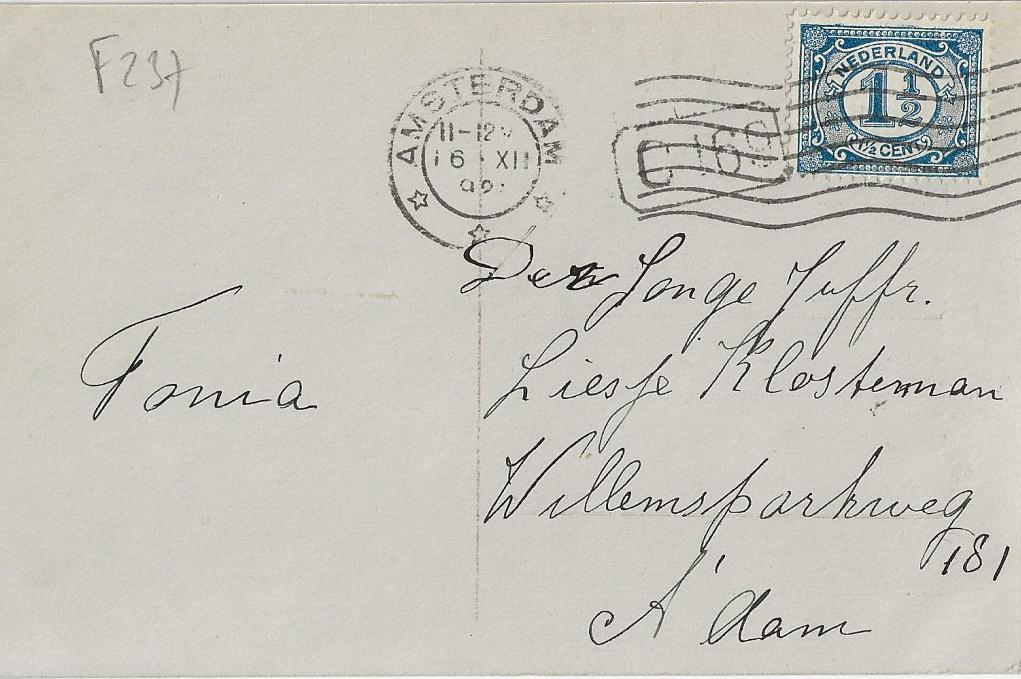 F237
AMSTERDAM
11-12
16 XII
NEDERLAND
1½
1½ CENT
Den Jonge Juffr.
Liesje Klosterman
Willemsparkweg
181
A'dam
Tonia